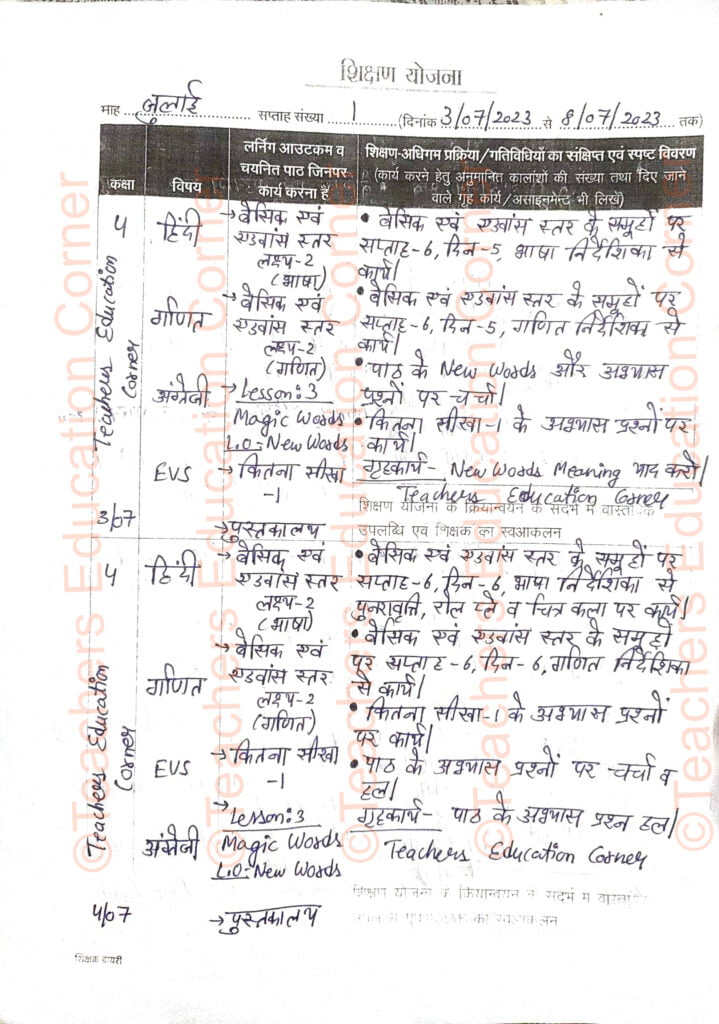 शिक्षण योजना
माह जुलाई सप्ताह संख्या 1 (दिनांक 3/07/2023 से 8/07/2023 तक)
कक्षा
विषय
लर्निंग आउटकम व
चयनित पाठ जिनपर
कार्य करना है
शिक्षण-अधिगम प्रक्रिया/गतिविधियों का संक्षिप्त एवं स्पष्ट विवरण
(कार्य करने हेतु अनुमानित कालांशों की संख्या तथा दिए जाने
वाले गृह कार्य/असाइनमेन्ट भी लिखें)
4
Teachers Education
Corner
3/07
हिंदी
→ बेसिक एवं
एडवांस स्तर
लक्ष्य-2
(भाषा)
• बेसिक एवं एडवांस स्तर के समूहों पर
सप्ताह-6, दिन-5, भाषा निर्देशिका से
कार्य।
गणित
→ बेसिक एवं
एडवांस स्तर
लक्ष्य-2
(गणित)
• बेसिक एवं एडवांस स्तर के समूहों पर
सप्ताह-6, दिन-5, गणित निर्देशिका से
कार्य।
अंग्रेजी
→ Lesson:3
Magic Words
L.O:- New Words
• पाठ के New Words और अभ्यास
प्रश्नों पर चर्चा।
EVS
→ कितना सीखा
-1
• कितना सीखा-1 के अभ्यास प्रश्नों पर
कार्य।
गृहकार्य- New Words Meaning याद करो।
Teachers Education Corner
→ पुस्तकालय
शिक्षण योजना के क्रियान्वयन के संदर्भ में वास्तविक
उपलब्धि एवं शिक्षक का स्वआकलन
4
Teachers Education
Corner
4/07
हिंदी
→ बेसिक एवं
एडवांस स्तर
लक्ष्य-2
(भाषा)
• बेसिक एवं एडवांस स्तर के समूहों पर
सप्ताह-6, दिन-6, भाषा निर्देशिका से
पुनरावृत्ति, रोल प्ले व चित्र कला पर कार्य।
गणित
→ बेसिक एवं
एडवांस स्तर
लक्ष्य-2
(गणित)
• बेसिक एवं एडवांस स्तर के समूहों
पर सप्ताह-6, दिन-6, गणित निर्देशिका
से कार्य।
EVS
→ कितना सीखा
-1
• कितना सीखा-1 के अभ्यास प्रश्नों
पर कार्य।
अंग्रेजी
→ Lesson:3
Magic Words
L.O:- New Words
• पाठ के अभ्यास प्रश्नों पर चर्चा व
हल।
गृहकार्य- पाठ के अभ्यास प्रश्न हल।
Teachers Education Corner
→ पुस्तकालय
शिक्षण योजना के क्रियान्वयन के संदर्भ में
शिक्षक डायरी
©Teachers Education Corner
©Teachers Education Corner
©Teachers Education Corner
©Teachers Education Corner
©Teachers Education Corner